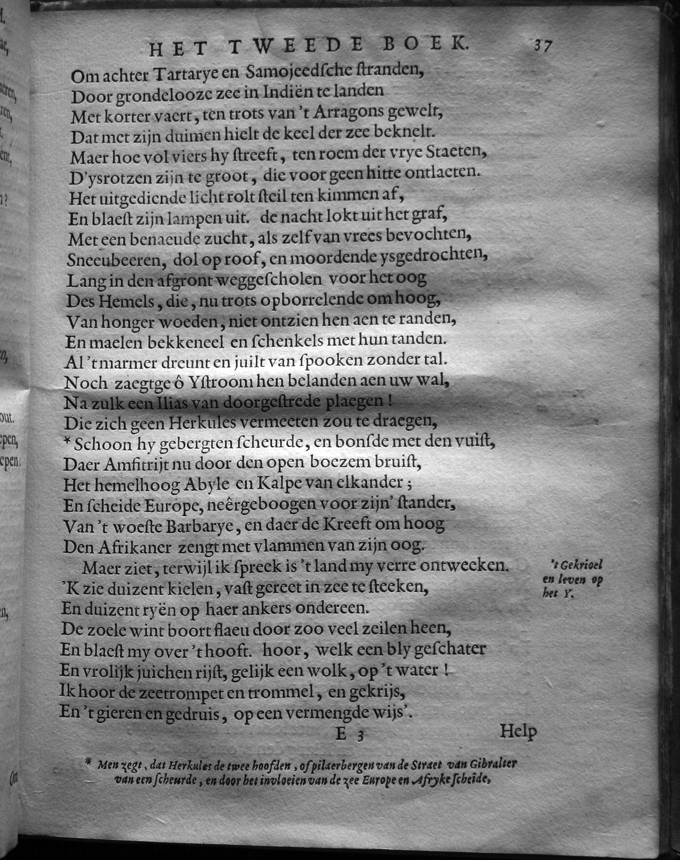 HET TWEEDE BOEK. 37
Om achter Tartarye en Samojeedſche ſtranden,
Door grondelooze zee in Indiën te landen
Met korter vaert, ten trots van 't Arragons gewelt,
Dat met zijn duimen hielt de keel der zee beknelt.
Maer hoe vol viers hy ſtreeft, ten roem der vrye Staeten,
D'ysrotzen zijn te groot, die voor geen hitte ontlaeten.
Het uitgediende licht rolt ſteil ten kimmen af,
En blaeſt zijn lampen uit. de nacht lokt uit het graf,
Met een benaeude zucht, als zelf van vrees bevochten,
Sneeubeeren, dol op roof, en moordende ysgedrochten,
Lang in den afgront weggeſcholen voor het oog
Des Hemels, die, nu trots opborrelende om hoog,
Van honger woeden, niet ontzien hen aen te randen,
En maelen bekkeneel en ſchenkels met hun tanden.
Al 't marmer dreunt en juilt van ſpooken zonder tal.
Noch zaegtge ô Yſtroom hen belanden aen uw wal,
Na zulk een Ilias van doorgeſtrede plaegen!
Die zich geen Herkules vermeeten zou te draegen,
* Schoon hy gebergten ſcheurde, en bonſde met den vuiſt,
Daer Amfitrijt nu door den open boezem bruiſt,
Het hemelhoog Abyle en Kalpe van elkander;
En ſcheide Europe, neêrgeboogen voor zijn' ſtander,
Van 't woeſte Barbarye, en daer de Kreeft om hoog
Den Afrikaner zengt met vlammen van zijn oog.
Maer ziet, terwijl ik ſpreek is 't land my verre ontweeken.
'K zie duizent kielen, vaſt gereet in zee te ſteeken,
En duizent ryën op haer ankers ondereen.
De zoele wint boort flaeu door zoo veel zeilen heen,
En blaeſt my over 't hooft. hoor, welk een bly geſchater
En vrolijk juichen rijſt, gelijk een wolk, op 't water!
Ik hoor de zeetrompet en trommel, en gekrijs,
En 't gieren en gedruis, op een vermengde wijs'.
't Gekrioel
en leven op
het Y.
E 3 Help
* Men zegt, dat Herkules de twee hoofden, of pilaerbergen van de Straet van Gibralter
van een ſcheurde, en door het invloeien van de zee Europe en Afryke ſcheide,